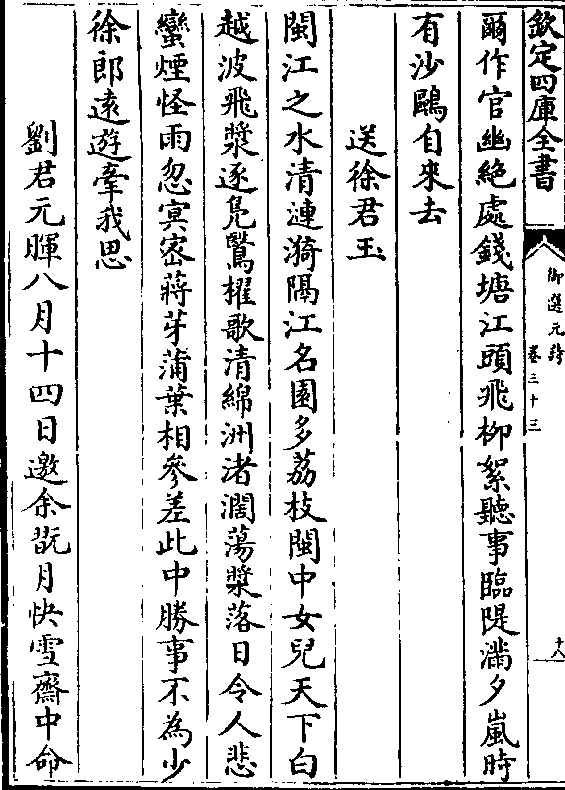 欽定四庫全書
御選元詩
卷三十三
十八
爾作官幽絶處錢塘江頭飛柳絮聽事臨隄滿夕嵐時
有沙鷗自來去
送徐君玉
閩江之水清漣漪隔江名園多荔枝閩中女兒天下白
越波飛槳逐鳧鷖櫂歌清綿洲渚濶蕩槳落日令人悲
蠻煙怪雨忽㝠宻蔣芽蒲葉相參差此中勝事不為少
徐郎逺遊牽我思
劉君元暉八月十四日邀余翫月快雪齋中命